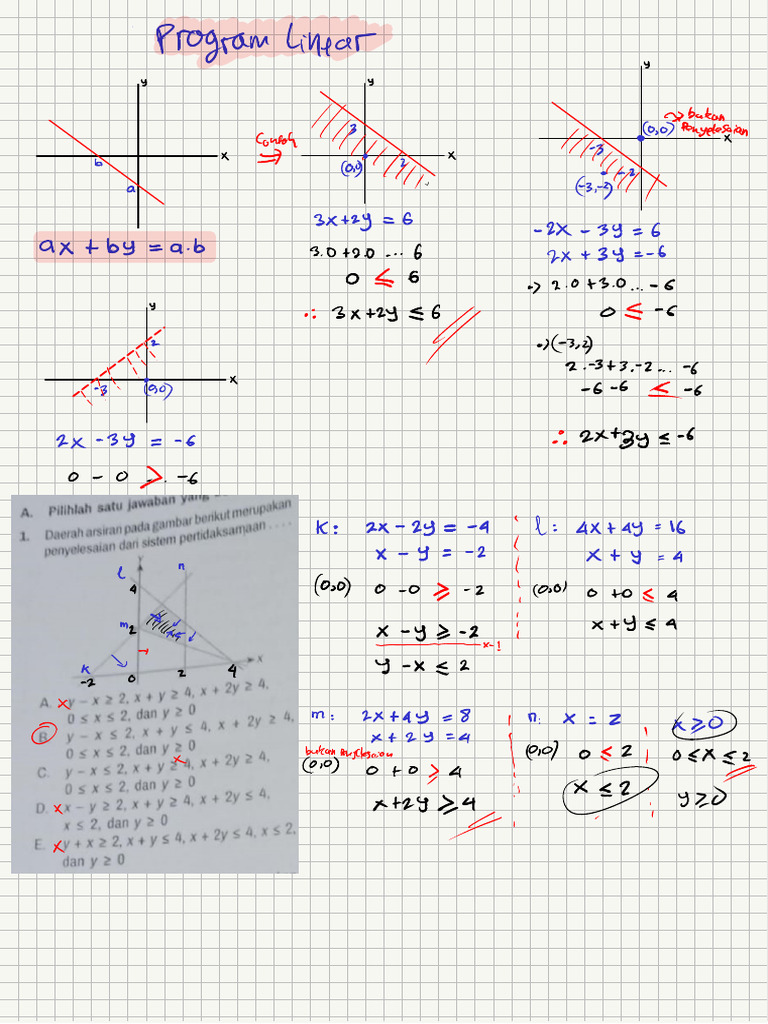 Program Linear
y
x
b
a
ax + by = a.b
Contoh
y
3
(0,0)
2
x
3x+2y = 6
3.0+2.0 ... 6
0 ≤ 6
∴ 3x+2y ≤ 6
y
(0,0)
bukan
Penyelesaian
x
-3
-2
(-3,-2)
-2x - 3y = 6
2x + 3y = -6
•) 2.0+3.0 ... -6
0 ≤ -6
•) (-3,2)
2.-3+3.-2 ... -6
-6-6 ≤ -6
∴ 2x+3y ≤ -6
y
2
-3
(0,0)
x
2x - 3y = -6
0 - 0 > -6
A. Pilihlah satu jawaban yang
1. Daerah arsiran pada gambar berikut merupakan
penyelesaian dari sistem pertidaksamaan ....
y
l
n
4
m
2
k
-2
0
2
4
x
A. x y - x ≥ 2, x + y ≥ 4, x + 2y ≥ 4,
0 ≤ x ≤ 2, dan y ≥ 0
B. y - x ≤ 2, x + y ≤ 4, x + 2y ≥ 4,
0 ≤ x ≤ 2, dan y ≥ 0
C. y - x ≤ 2, x + y ≥ 4, x + 2y ≥ 4,
x
0 ≤ x ≤ 2, dan y ≥ 0
D. x x - y ≥ 2, x + y ≥ 4, x + 2y ≤ 4,
x ≤ 2, dan y ≥ 0
E. x y + x ≥ 2, x + y ≤ 4, x + 2y ≤ 4, x ≤ 2,
dan y ≥ 0
k: 2x - 2y = -4
x - y = -2
(0,0) 0 - 0 ≥ -2
x - y ≥ -2
x-1
y - x ≤ 2
l: 4x + 4y = 16
x + y = 4
(0,0) 0 + 0 ≤ 4
x + y ≤ 4
m: 2x + 4y = 8
x + 2y = 4
bukan Penyelesaian
(0,0) 0 + 0 ≥ 4
x + 2y ≥ 4
n: x = 2
(0,0) 0 ≤ 2
x ≤ 2
x ≥ 0
0 ≤ x ≤ 2
y ≥ 0